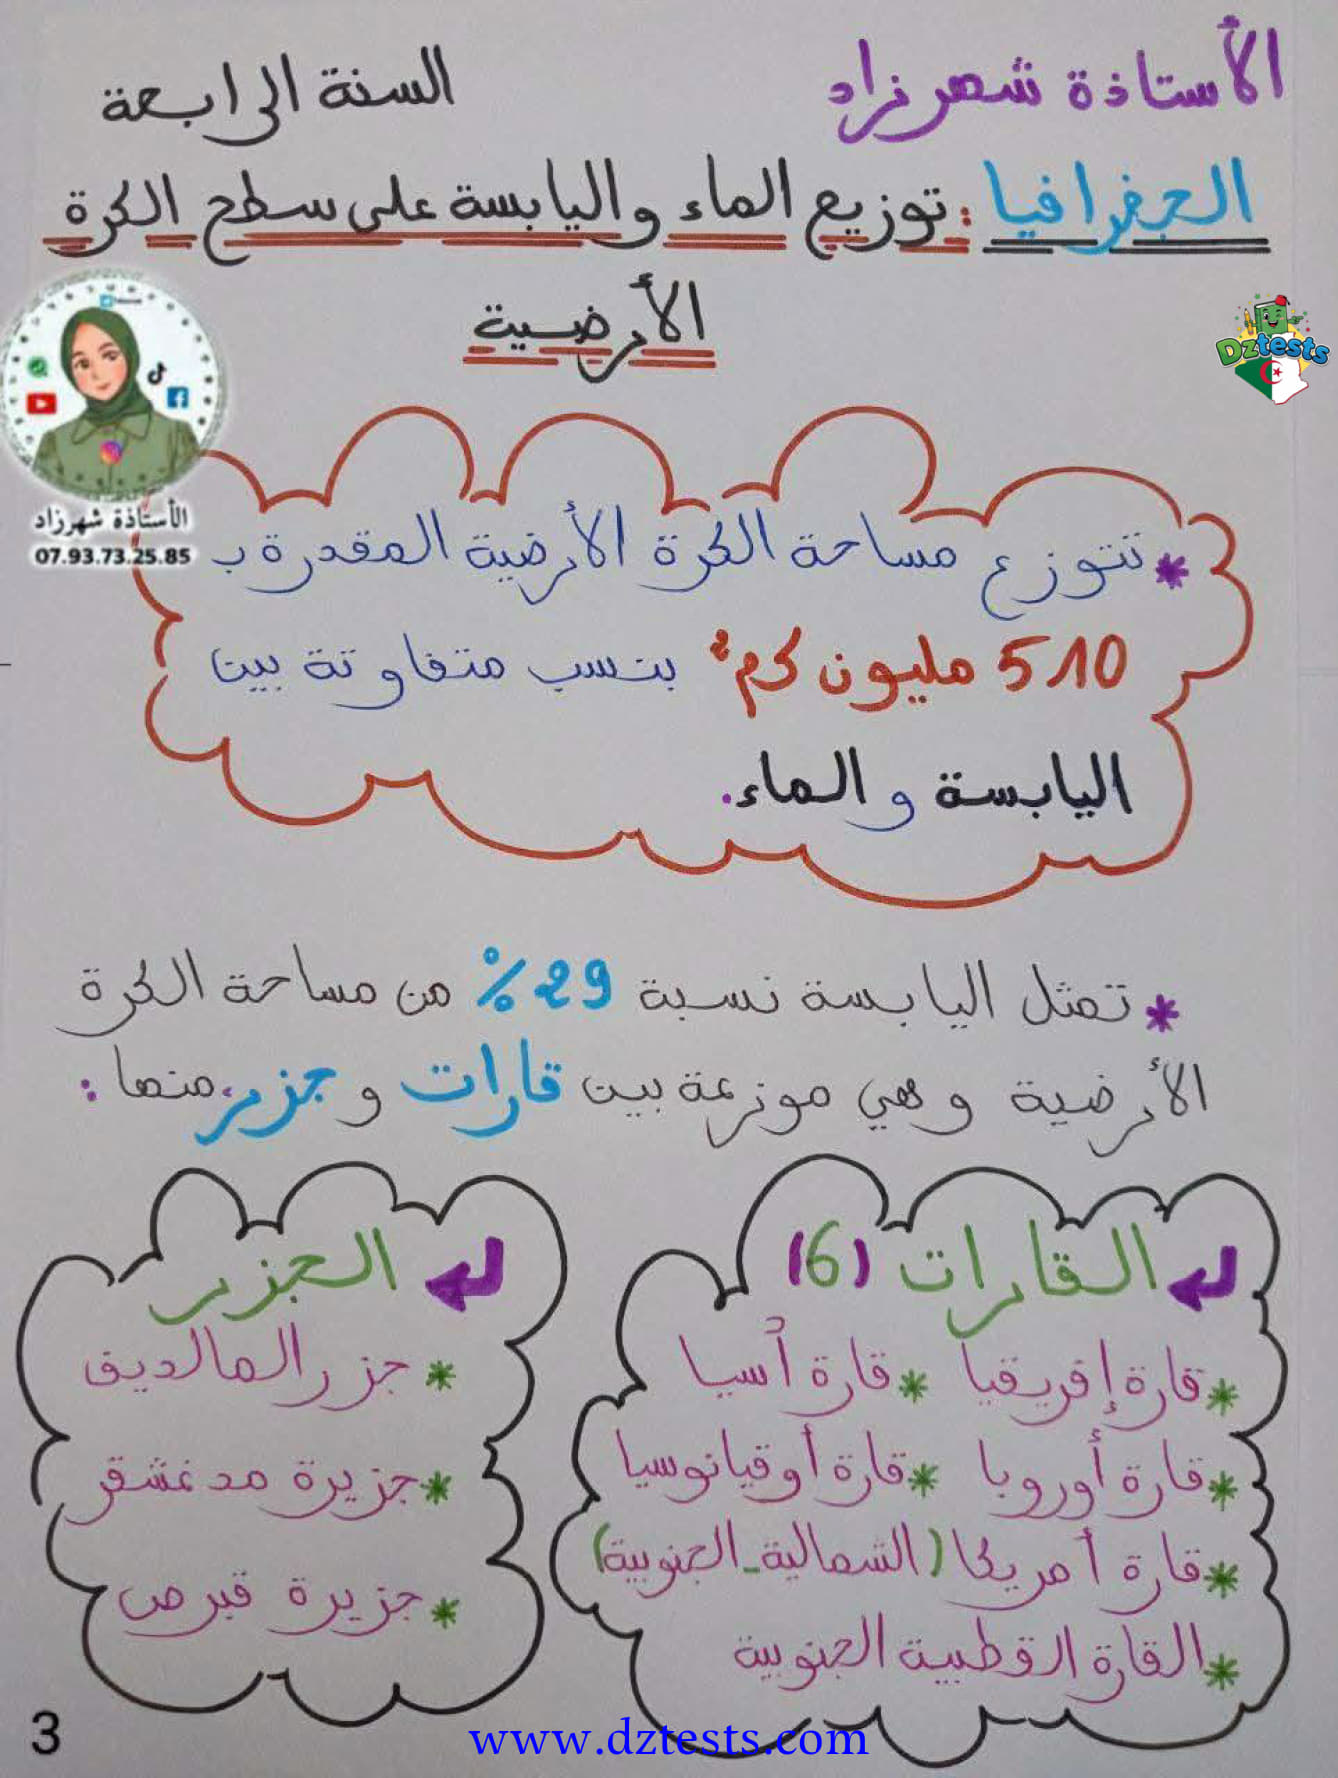 الأستاذة شهرزاد
السنة الرابعة
الجغرافيا : توزيع الماء واليابسة على سطح الكرة
الأرضية
Dztests
الأستاذة شهرزاد
07.93.73.25.85
* تتوزع مساحة الكرة الأرضية المقدرة ب
510 مليون كم² بنسب متفاوتة بين
اليابسة و الماء.
* تمثل اليابسة نسبة 29% من مساحة الكرة
الأرضية وهي موزعة بين قارات و جزر، منها :
القارات (6)
* قارة إفريقيا * قارة أسيا
* قارة أوروبا * قارة أوقيانوسيا
* قارة أمريكا (الشمالية - الجنوبية)
* القارة القطبية الجنوبية
الجزر
* جزر المالديف
* جزيرة مدغشقر
* جزيرة قبرص
3
www.dztests.com